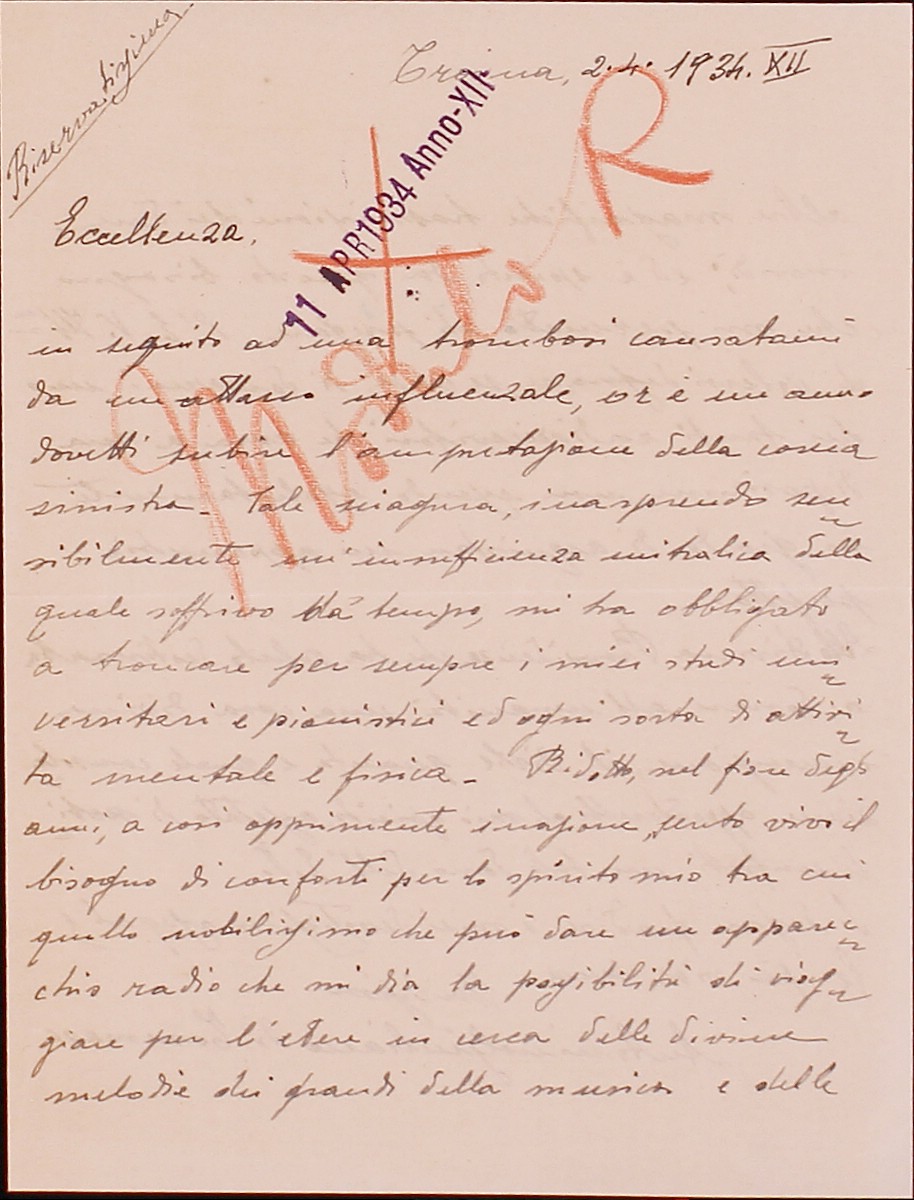 Riservatissima
Troina, 2.4.1934. XII
11 APR 1934 Anno-XII
R
Eccellenza,
in seguito ad una trombosi causatami
da un attacco influenzale, or è un anno
dovetti subire l'amputazione della coscia
sinistra. Tale sciagura, inasprendo sen
sibilmente un'insufficienza mitralica della
quale soffrivo da tempo, mi ha obbligato
a troncare per sempre i miei studi uni
versitari e pianistici ed ogni sorta di attivi
tà mentale e fisica. Ridotto, nel fiore degli
anni, a così opprimente inazione, sento vivo il
bisogno di conforti per lo spirito mio tra cui
quello nobilissimo che può dare un apparec
chio radio che mi dia la possibilità di viag
giare per l'etere in cerca delle divine
melodie dei grandi della musica e delle